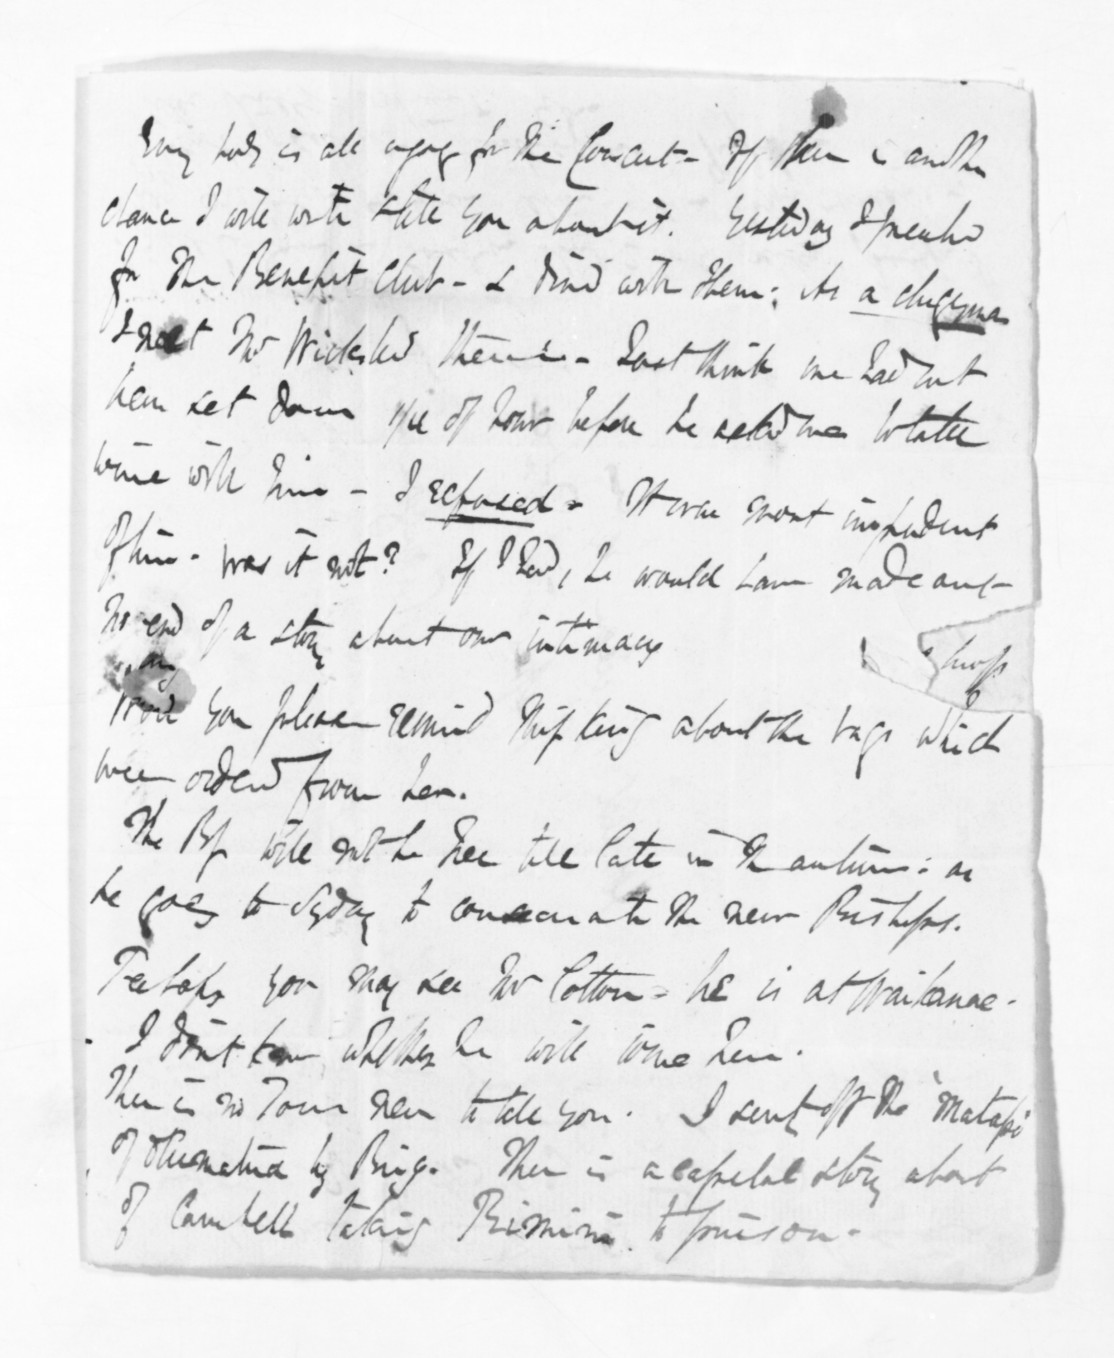 Every body is all agog for the Concert - If there is another
chance I will write & tell you about it. Yesterday I preached
for the Benefit Club - & dined with them: As a clergyman
I met Mr Wicksteed there - Just think we had not
been set down 1/4 of hour before he asked me to take
wine with him - I refused - It was most impudent
of him - was it not? If I had, he would have made out
no end of a story about our intimacy
any
Would you please remind Miss King about the bags which
were ordered from her.
The Bp will not be here till late in the autumn: as
he goes to Sydney to consecrate the new Bishops.
Perhaps you may see Mr Cotton - he is at Waikanae -
I don't know whether he will come here.
There is no Town news to tell you. I sent off the
of by Brig. There is a capital story about
of Campbell taking to prison -